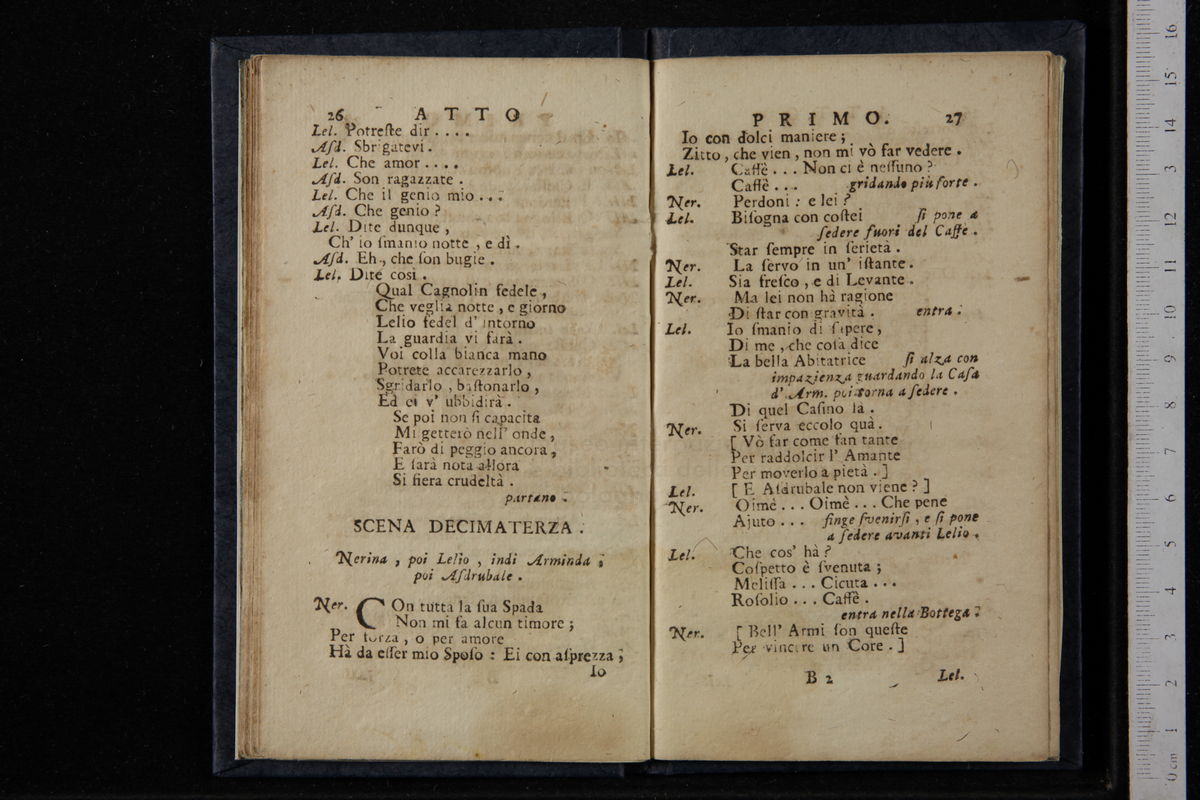 26 ATTO
Lel. Potreſte dir . . . .
Aſd. Sbrigatevi .
Lel. Che amor . . . .
Aſd. Son ragazzate .
Lel. Che il genio mio . . .
Aſd. Che genio ?
Lel. Dite dunque ,
Ch' io ſmanio notte , e dì .
Aſd. Eh , che ſon bugie .
Lel. Dite così .
Qual Cagnolin fedele ,
Che veglia notte , e giorno
Lelio fedel d' intorno
La guardia vi farà .
Voi colla bianca mano
Potrete accarezzarlo ,
Sgridarlo , baſtonarlo ,
Ed ei v' ubbidirà .
Se poi non ſi capacita
Mi getterò nell' onde ,
Farò di peggio ancora ,
E ſarà nota allora
Sì fiera crudeltà .
partano .
SCENA DECIMATERZA .
Nerina , poi Lelio , indi Arminda ;
poi Aſdrubale .
Ner. COn tutta la ſua Spada
Non mi fa alcun timore ;
Per forza , o per amore
Hà da eſſer mio Spoſo : Ei con aſprezza ;
Io
PRIMO. 27
Io con dolci maniere ;
Zitto , che vien , non mi vò far vedere .
Lel. Caffè . . . Non ci è neſſuno ?
Caffè . . . gridando più forte .
Ner. Perdoni : e lei ?
Lel. Biſogna con coſtei ſi pone a
ſedere fuori del Caffe .
Star ſempre in ſerietà .
Ner. La ſervo in un' iſtante .
Lel. Sia freſco , e di Levante .
Ner. Ma lei non hà ragione
Di ſtar con gravità . entra .
Lel. Io ſmanio di ſapere ,
Di me , che coſa dice
La bella Abitatrice ſi alza con
impazienza guardando la Caſa
d' Arm. poi torna a ſedere .
Di quel Caſino là .
Ner. Si ſerva eccolo quà .
[ Vò far come fan tante
Per raddolcir l' Amante
Per moverlo a pietà . ]
Lel. [ E Aſdrubale non viene ? ]
Ner. Oimè . . . Oimè . . . Che pene
Ajuto . . . finge ſvenirſi , e ſi pone
a ſedere avanti Lelio .
Lel. Che cos' hà ?
Coſpetto è ſvenuta ;
Meliſſa . . . Cicuta . . .
Roſolio . . . Caffè .
entra nella Bottega .
Ner. [ Bell' Armi ſon queſte
Per vincere un Core . ]
B 2 Lel.